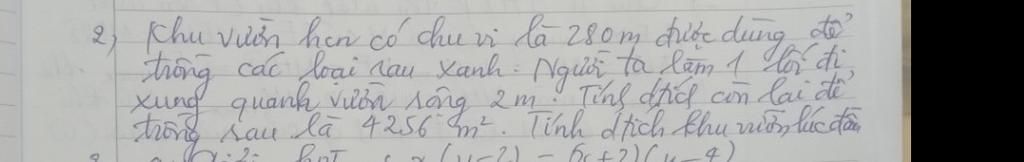 2, Khu vườn hcn có chu vi là 280m được dùng để
trồng các loại rau xanh. Người ta làm 1 lối đi
xung quanh vườn rộng 2m. Tính dtích còn lại để
trồng rau là 4256 m². Tính dtích khu vườn lúc đầu